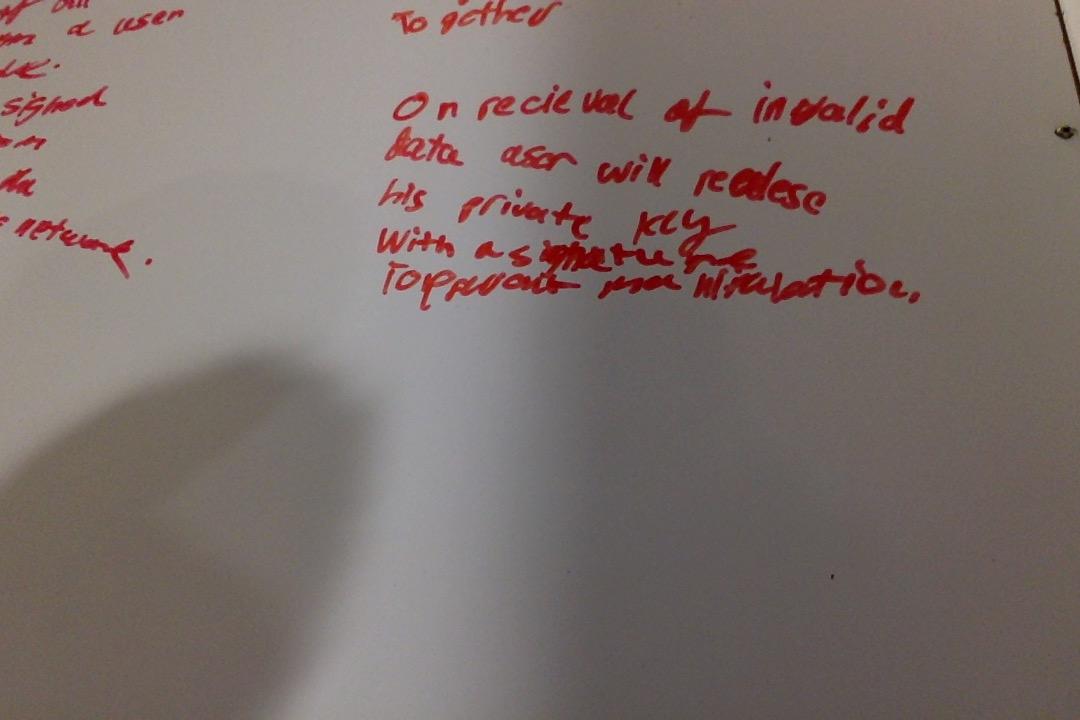 a user
signed
network.
To gether
On recieval of invalid
data user will readese
his private key
With a signature
To prevent manipulation.